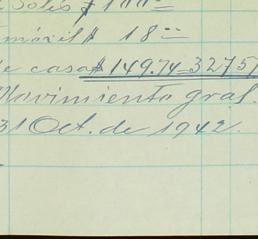 Soles $ 100=
móvil $ 18=
de casa $ 149.74 32751
Movimiento gral.
31 Oct. de 1942.